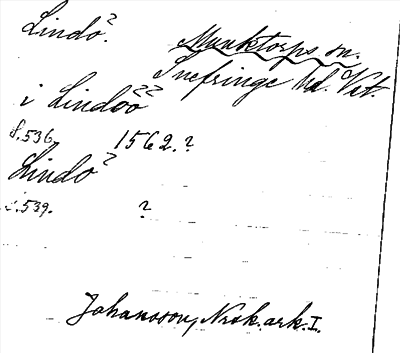 Lindö?
Munktorps sn.
Snefringe hd. Vst.
i Lindöö??
s.536. 1562.?
Lindö?
s.539. ?
Johansson, Norsk.ark.I.